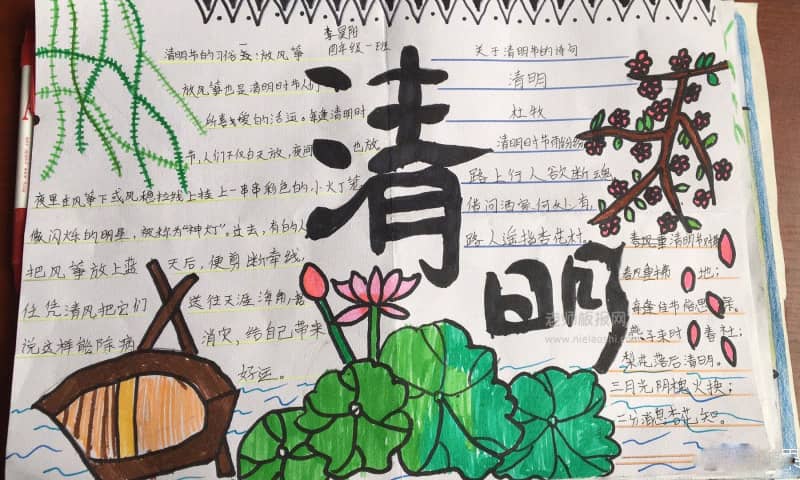 李昊阳
四年级一班
清明节的习俗三:放风筝
放风筝也是清明时节人们
所喜爱的活运。每逢清明时
节,人们不仅白天放,夜间也放
夜里在风筝下或风稳拉线上挂上一串串彩色的小灯笼
像闪烁的明星,被称为“神灯”。过去,有的人
把风筝放上蓝天后,便剪断牵线,
任凭清风把它们送往天涯海角,
说这样能除病消灾,给自己带来
好运。
清明
关于清明节的诗句
清明
杜牧
清明时节雨纷纷
路上行人欲断魂
借问酒家何处有,
路人遥指杏花村。
春风重清明
春风重拂地;
每逢佳节倍思
燕子来时春社;
梨花落后清明。
三月光阴槐火换;
二分消息杏花知。
老师板报网
www.nielaoshi.com